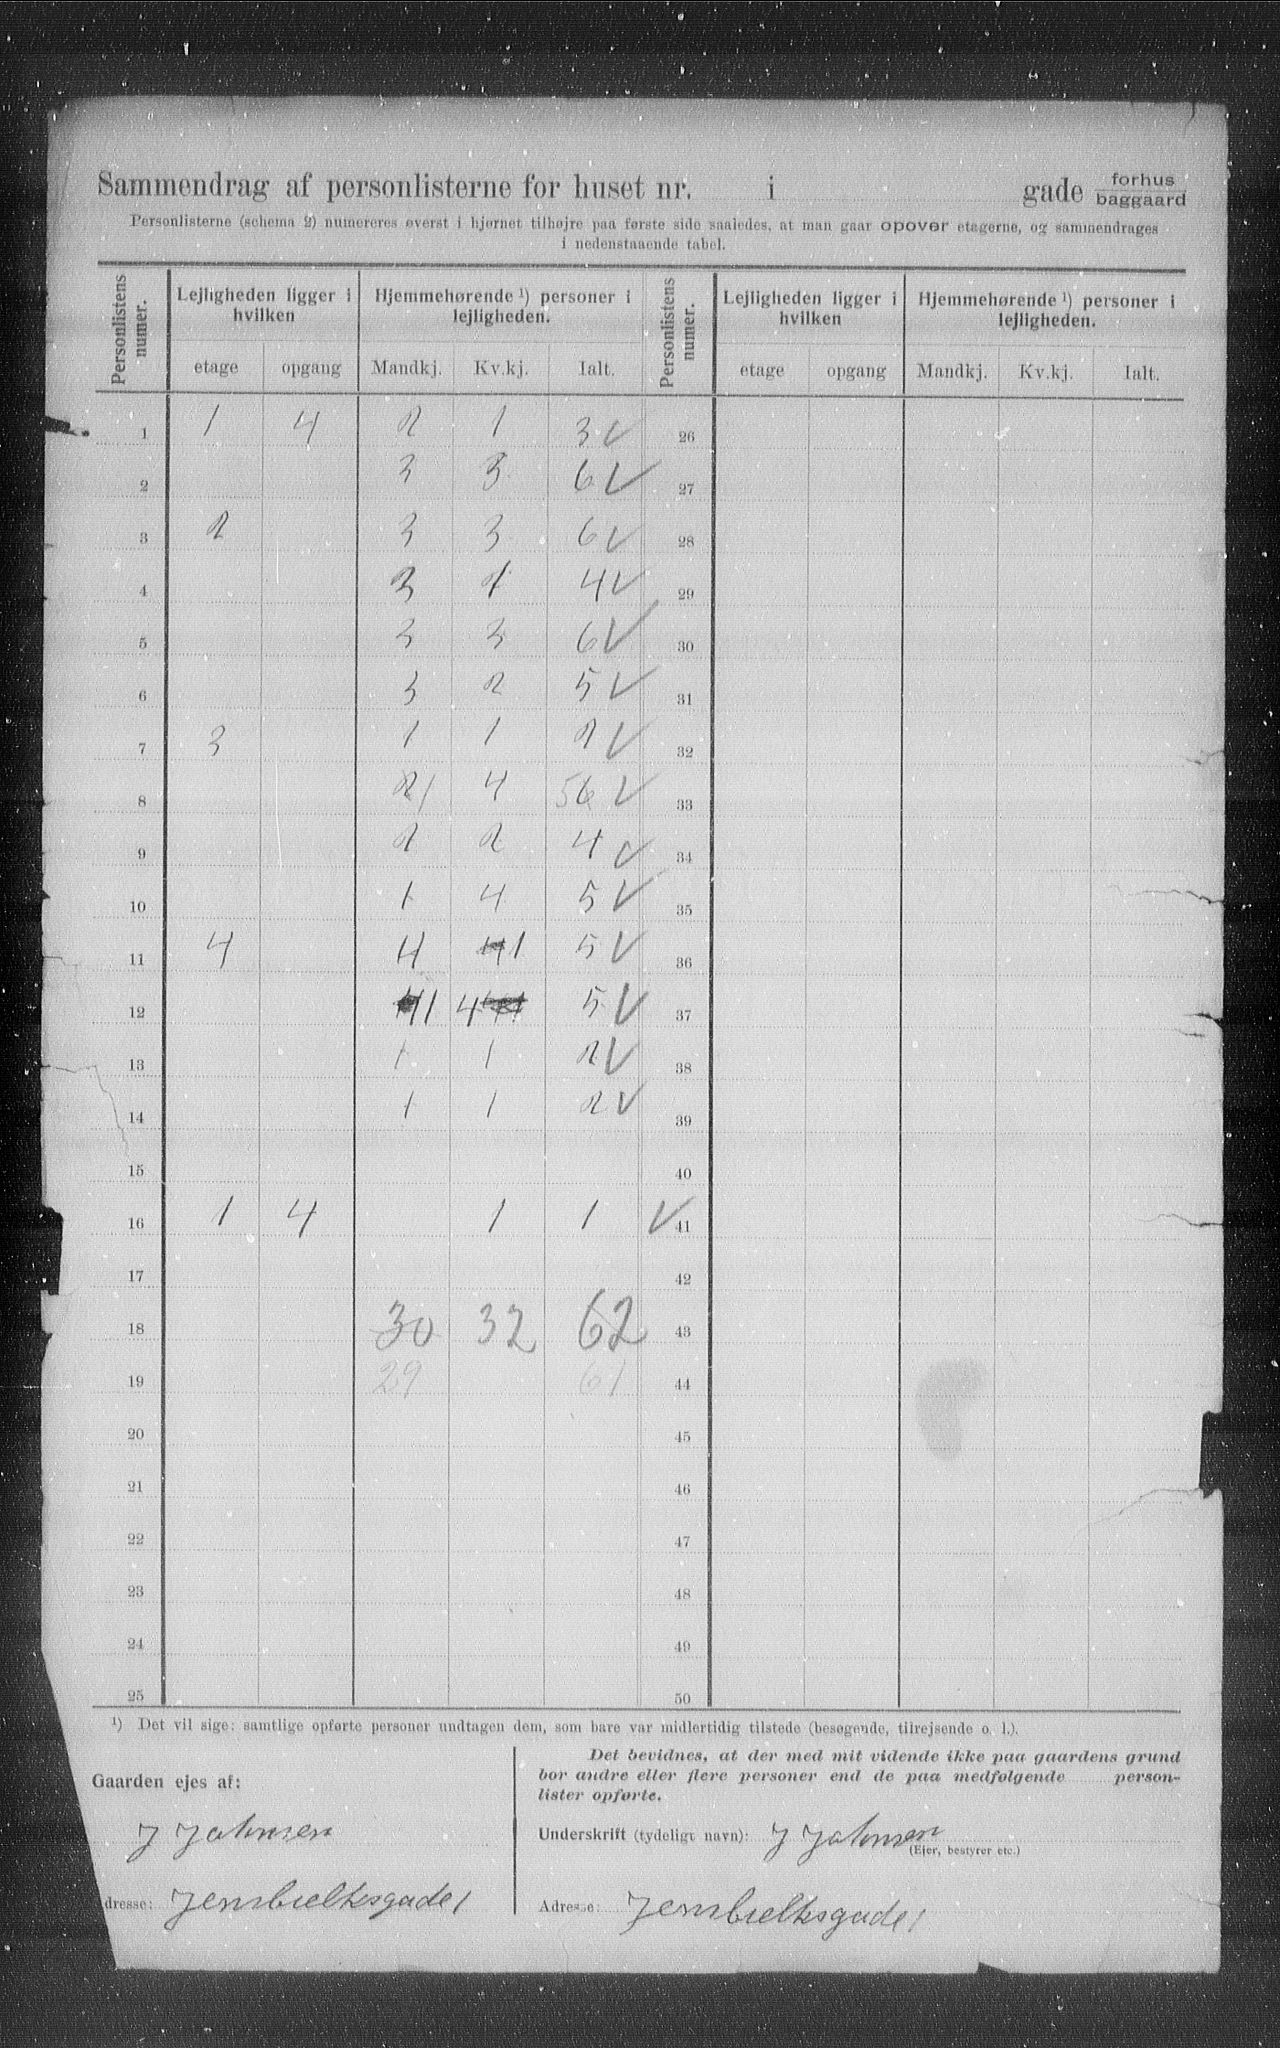 Sammendrag af personlisterne for huset nr. i gade forhus baggaard
Personlisterne (schema 2) numereres øverst i hjørnet tilhøjre paa første side saaledes, at man gaar opover etagerne, og sammendrages
i nedenstaaende tabel.
Personlistens numer. Lejligheden ligger i hvilken Hjemmehørende ¹) personer i lejligheden. Personlistens numer. Lejligheden ligger i hvilken Hjemmehørende ¹) personer i lejligheden.
etage opgang Mandkj. Kv.kj. Ialt. etage opgang Mandkj. Kv.kj. Ialt.
1 1 4 2 1 3 ✓ 26
2 3 3 6 ✓ 27
3 2 3 3 6 ✓ 28
4 3 1 4 ✓ 29
5 3 3 6 ✓ 30
6 3 2 5 ✓ 31
7 3 1 1 2 ✓ 32
8 2 1 4 5 6 ✓ 33
9 2 2 4 ✓ 34
10 1 4 5 ✓ 35
11 4 4 1 5 ✓ 36
12 1 4 5 ✓ 37
13 1 1 2 ✓ 38
14 1 1 2 ✓ 39
15 40
16 1 4 1 1 ✓ 41
17 42
18 30 32 62 43
19 29 61 44
20 45
21 46
22 47
23 48
24 49
25 50
¹) Det vil sige: samtlige opførte personer undtagen dem, som bare var midlertidig tilstede (besøgende, tilrejsende o. l.).
Gaarden ejes af:
J Johnsen
dresse: Jensbielkesgade 1
Det bevidnes, at der med mit vidende ikke paa gaardens grund
bor andre eller flere personer end de paa medfølgende person-
lister opførte.
Underskrift (tydeligt navn): J Johnsen
(Ejer, bestyrer etc.)
Adresse: Jensbielkesgade 1